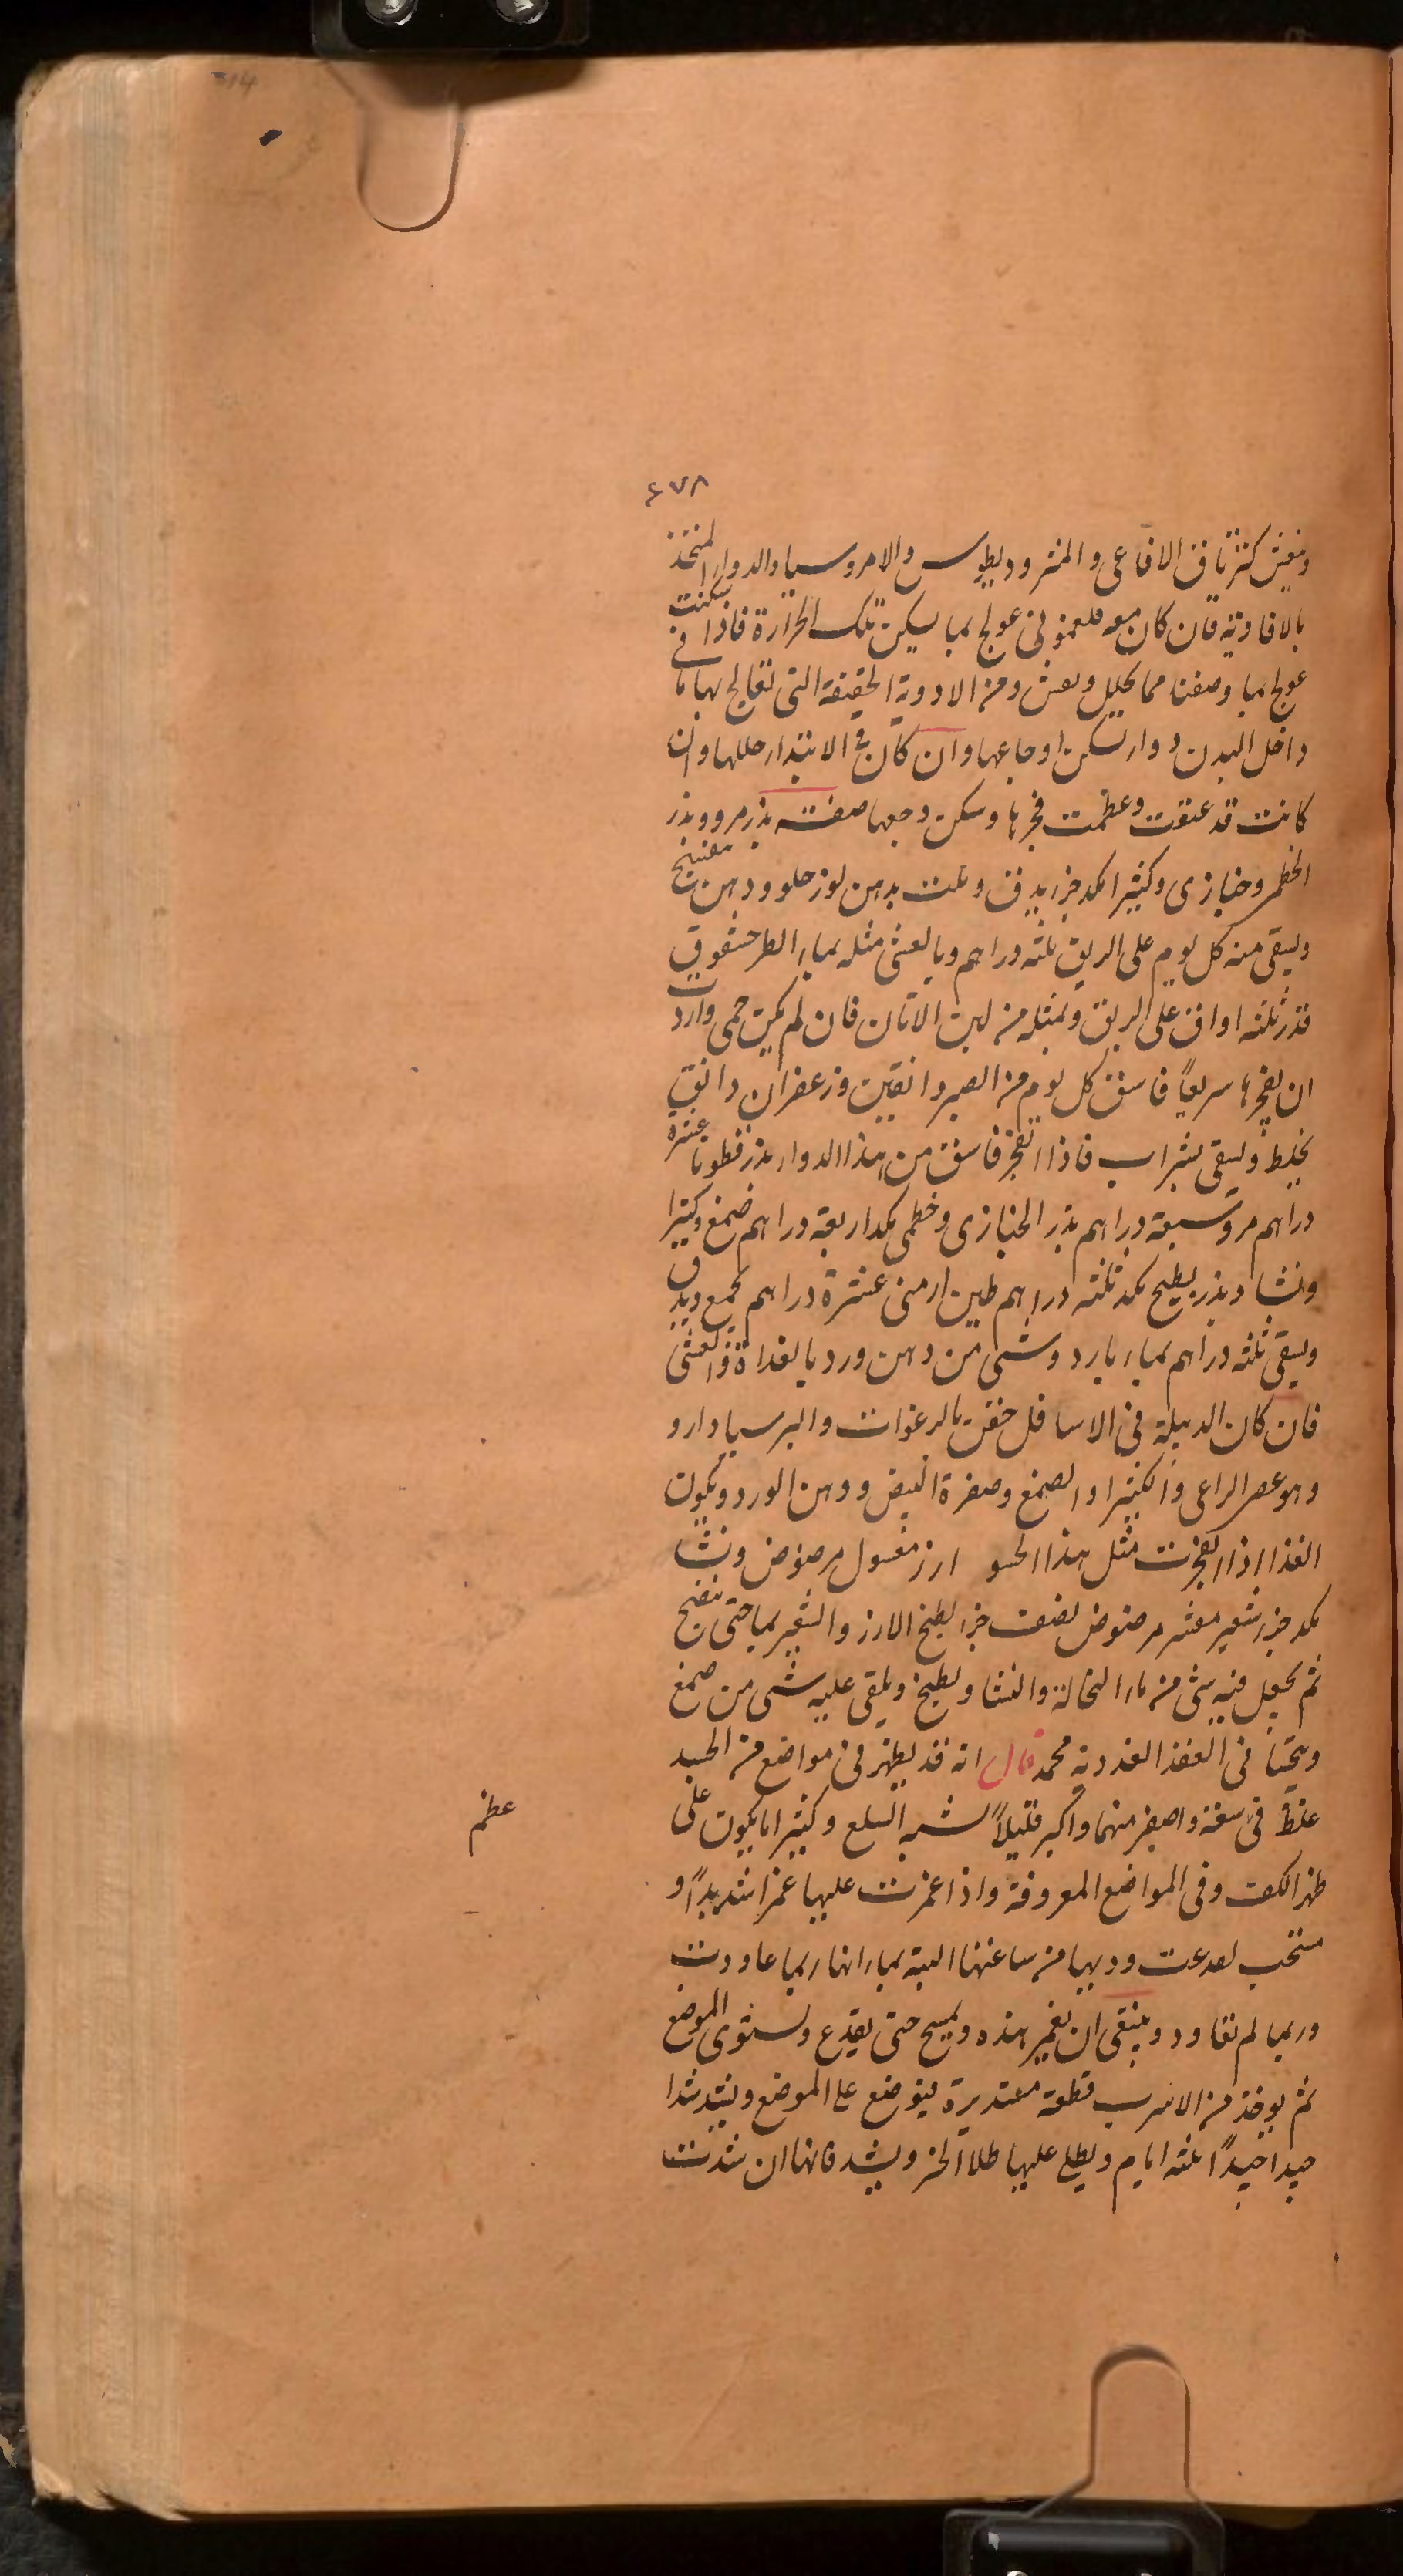 ٤٧٨
ويغش كترياق الافاعى والمثروديطوس والامروسيا والدواء المتخذ
بالافاويه فان كان معه فلغمونى عولج بما يسكن تلك الحرارة فاذا سكنت
عولج بما وصفنا مما يحلل ويفش ومن الادوية الخفيفة التى تعالج بها ما فى
داخل البدن دواء يسكن اوجاعها وان كان فى الابتداء حللها وان
كانت قد عتقت وعظمت فجرها وسكن وجعها صفته بذر مرو وبذر
الخطمى وخبازى وكثيرا مكد جزء يدق ويلت بدهن لوز حلو ودهن بنفسج
ويسقى منه كل يوم على الريق ثلثه دراهم وبالعشى مثله بماء الطرخشقوق
قدر ثلثه اواق على الريق وبمثله من لبن الاتان فان لم يكن حمى واردت
ان يفجرها سريعاً فاسق كل يوم من الصبر دانقين وزعفران دانق
يخلط ويسقى بشراب فاذا انفجر فاسق من هذا الدواء بذر قطونا عشرة
دراهم مرو سبعة دراهم بذر الخبازى وخطمى مكد اربعة دراهم صمغ وكثيرا
ونشا وبذر بطيخ مكد ثلثه دراهم طين ارمنى عشرة دراهم يجمع ويدق
ويسقى ثلثه دراهم بماء بارد وشى من دهن ورد بالغداة والعشى
فان كان الدبيلة فى الاسافل حقن بالرغوات والبرسيادارو
وهو عصى الراعى والكثيرا والصمغ وصفرة البيض ودهن الورد ويكون
الغذا اذا انفجرت مثل هذا الحسو ارز مغسول مرضوض ونشا
مكد جزء شعير مقشر مرضوض نصف جزء يطبخ الارز والشعير بماء حتى ينضج
ثم يجعل فيه شى من ماء النخالة والنشا ويطبخ ويلقى عليه شى من صمغ
ويحسا فى العقد الغددية محمد قال انه قد يظهر فى مواضع من الجسد
غلظ فى سعة واصغر منها واكبر قليلاً شبه السلع وكثيرا ما يكون على
عظم
ظهر الكف وفى المواضع المعروفة واذا غمزت عليها غمزا شديداً و
من ساعتها البتة ربما عاودت
وربما لم تعاود وينبغى ان يغمز هذه ويمسح حتى يفدع ويستوى الموضع
ثم يوخذ من الاسرب قطعة مستديرة فيوضع على الموضع ويشد شدا
جيدا جيداً ثلثه ايام ويطلى عليها طلاء الحز ويشد فانها ان شدت